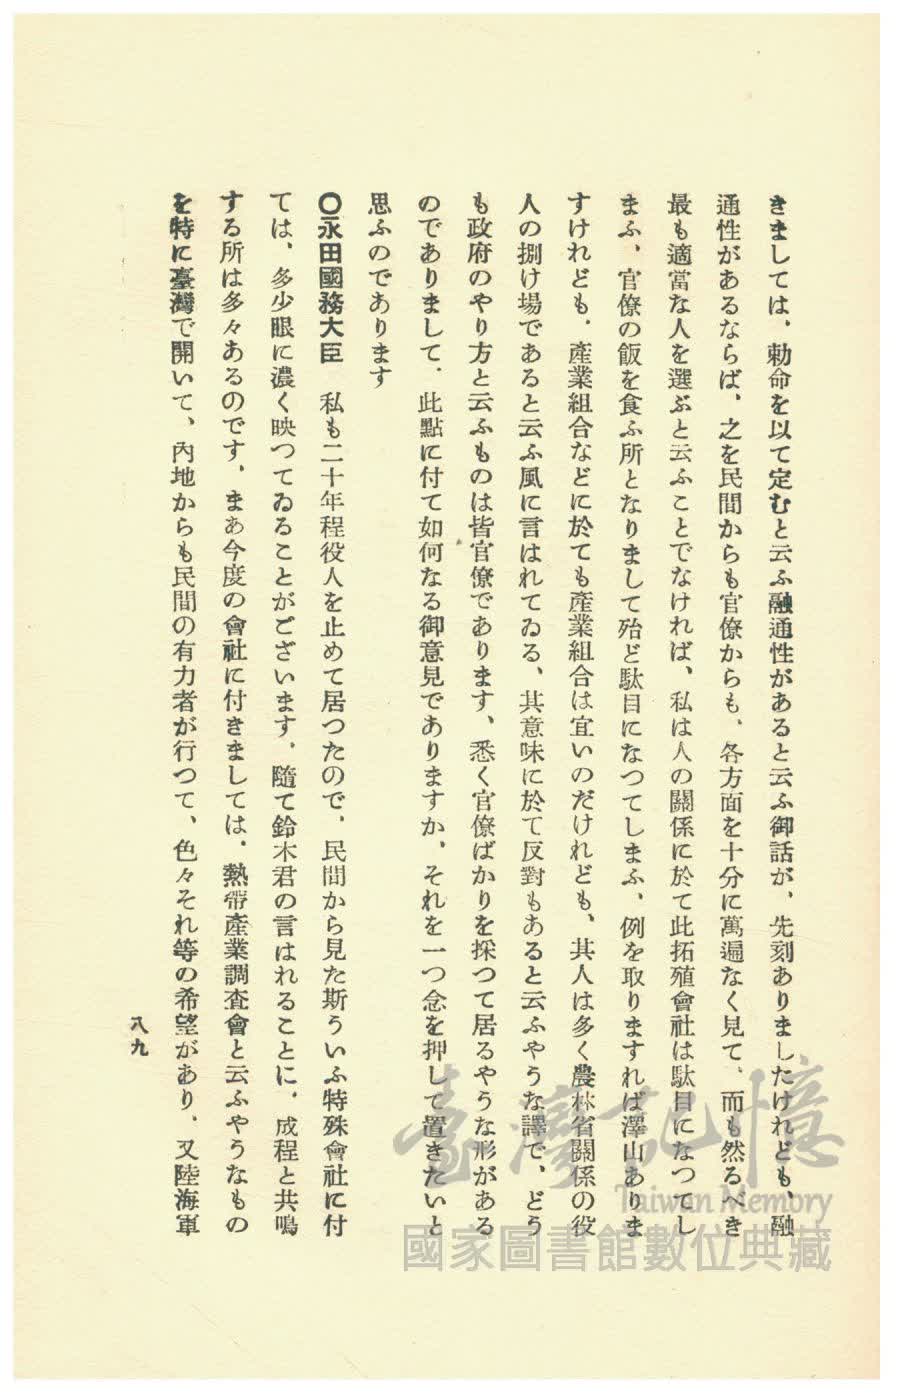 きましては、勅命を以て定むと云ふ融通性があると云ふ御話が、先刻ありましたけれども、融
通性があるならば、之を民間からも官僚からも、各方面を十分に萬遍なく見て、而も然るべき
最も適當な人を選ぶと云ふことでなければ、私は人の關係に於て此拓殖會社は駄目になつてし
まふ、官僚の飯を食ふ所となりまして殆ど駄目になつてしまふ、例を取りますれば澤山ありま
すけれども、產業組合などに於ても產業組合は宜いのだけれども、其人は多く農林省關係の役
人の捌け場であると云ふ風に言はれてゐる、其意味に於て反對もあると云ふやうな譯で、どう
も政府のやり方と云ふものは皆官僚であります、悉く官僚ばかりを採つて居るやうな形がある
のでありまして、此點に付て如何なる御意見でありますか、それを一つ念を押して置きたいと
思ふのであります
〇永田國務大臣　私も二十年程役人を止めて居つたので、民間から見た斯ういふ特殊會社に付
ては、多少眼に濃く映つてゐることがございます、隨て鈴木君の言はれることに、成程と共鳴
する所は多々あるのです、まあ今度の會社に付きましては、熱帶產業調査會と云ふやうなもの
を特に臺灣で開いて、內地からも民間の有力者が行つて、色々それ等の希望があり、又陸海軍
八九
臺灣記憶
Taiwan Memory
國家圖書館數位典藏